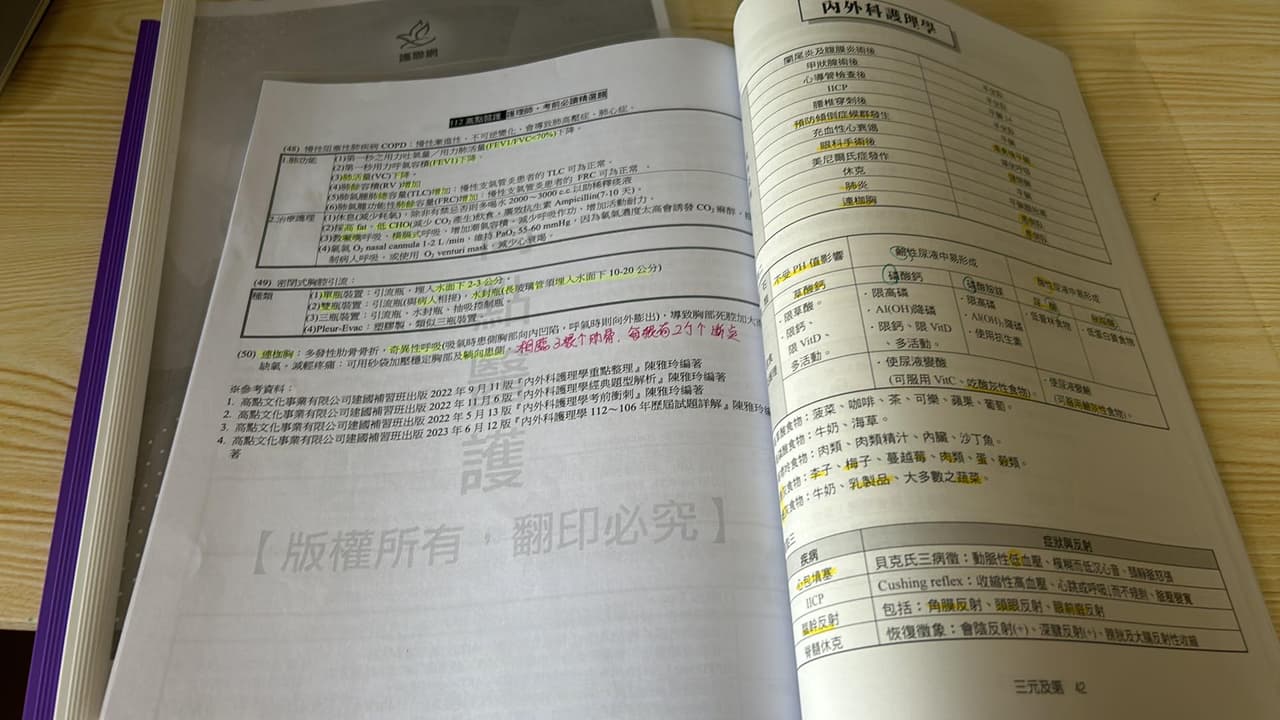 護聯網
112 高點醫護 護理師‧考前必讀精選題
(48) 慢性阻塞性肺疾病 COPD：慢性漸進性、不可逆變化，會導致肺高壓症、肺心症。
1.肺功能
(1)第一秒之用力吐氣量／用力肺活量(FEV1/FVC<70%)下降。
(2)第一秒用力呼氣容積(FEV1)下降。
(3)肺活量(VC)下降。
(4)肺餘容積(RV)增加
(5)肺氣腫肺總容量(TLC)增加；慢性支氣管炎患者的 TLC 可為正常。
(6)肺氣腫功能性肺餘容量(FRC)增加；慢性支氣管炎患者的 FRC 可為正常。
2.治療護理
(1)休息(減少耗氧)，除非有禁忌否則多喝水 2000～3000 c.c 以助稀釋痰液
(2)採高 fat、低 CHO(減少 CO₂ 產生)飲食，廣效抗生素 Ampicillin(7-10 天)。
(3)教噘嘴呼吸、橫膈式呼吸，增加潮氣容積、減少呼吸作功、增加活動耐力。
(4)氧氣 O₂ nasal cannula 1-2 L /min，維持 PaO₂ 55-60 mmHg，因為氧氣濃度太高會誘發 CO₂ 麻醉，
制病人呼吸，或使用 O₂ venturi mask，減少心衰竭。
(49) 密閉式胸腔引流：
種類
(1)單瓶裝置：引流瓶，埋入水面下 2-3 公分。
(2)雙瓶裝置：引流瓶(與病人相接)，水封瓶(長玻璃管須埋入水面下 10-20 公分)
(3)三瓶裝置：引流瓶、水封瓶、抽吸控制瓶
(4)Pleur-Evac：塑膠製，類似三瓶裝置
(50) 連枷胸：多發性肋骨骨折，奇異性呼吸(吸氣時患側胸部向內凹陷，呼氣時則向外膨出)，導致胸部死腔加大
缺氧。減輕疼痛：可用砂袋加壓穩定胸部及躺向患側。
相鄰3根个肋骨，每根有2个个斷点
※參考資料：
1. 高點文化事業有限公司建國補習班出版 2022 年 9 月 11 版『內外科護理學重點整理』陳雅玲編著
2. 高點文化事業有限公司建國補習班出版 2022 年 11 月 6 版『內外科護理學經典題型解析』陳雅玲編著
3. 高點文化事業有限公司建國補習班出版 2022 年 5 月 13 版『內外科護理學考前衝刺』陳雅玲編著
4. 高點文化事業有限公司建國補習班出版 2023 年 6 月 12 版『內外科護理學 112～106 年歷屆試題詳解』陳雅玲
著
點醫護
【版權所有，翻印必究】
內外科護理學
闌尾炎及腹膜炎術後
甲狀腺術後
心導管檢查後
IICP
腰椎穿刺後
預防傾倒症候群發生
充血性心衰竭
眼科手術後
美尼爾氏症發作
休克
肺炎
連枷胸
不受 PH 值影響
鹼性尿液中易形成
酸性尿液中易形成
草酸鈣
磷酸鈣
磷酸銨鎂
尿酸
胱胺酸
‧限草酸。
‧限鈣、
限 VitD、
多活動。
‧限高磷
‧Al(OH)₃降磷
‧限鈣、限 VitD
、多活動。
‧限高磷
‧Al(OH)₃降磷
‧使用抗生素
‧低普林食物
‧低蛋白質食物
‧使尿液變酸
(可服用 VitC、吃酸灰性食物)。
‧使尿液變鹼
(可服用鹼灰性食物)。
草酸食物：菠菜、咖啡、茶、可樂、蘋果、葡萄。
食物：牛奶、海草。
食物：肉類、肉類精汁、內臟、沙丁魚。
食物：李子、梅子、蔓越莓、肉類、蛋、穀類。
食物：牛奶、乳製品、大多數之蔬菜。
疾病
症狀與反射
心包填塞
貝克氏三病徵：動脈性低血壓、模糊而低沉心音、頸靜脈怒張
IICP
Cushing reflex：收縮性高血壓、心跳或呼吸↓而不規則、脈壓變寬
腦幹反射
包括：角膜反射、頭眼反射、眼前庭反射
脊髓休克
恢復徵象：會陰反射(+)、深腱反射(+)、膀胱及大腸反射性收縮
三元及第 42